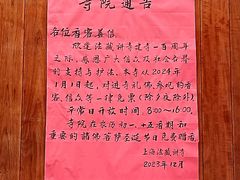 寺院通告
各位香客善信
欣逢法藏讲寺建寺一百周年
之际，感恩广大信众及社会各界
的支持与护法，本寺从2024年
1月1日起，对进寺礼佛、参观的香
客、信众等一律免票（除夕夜除外）
平常日开放时间 8:00~16:00，
寺院在农历初一、十五香期和
重要的诸佛菩萨圣诞节日免费赠香
上海法藏讲寺
2023年12月